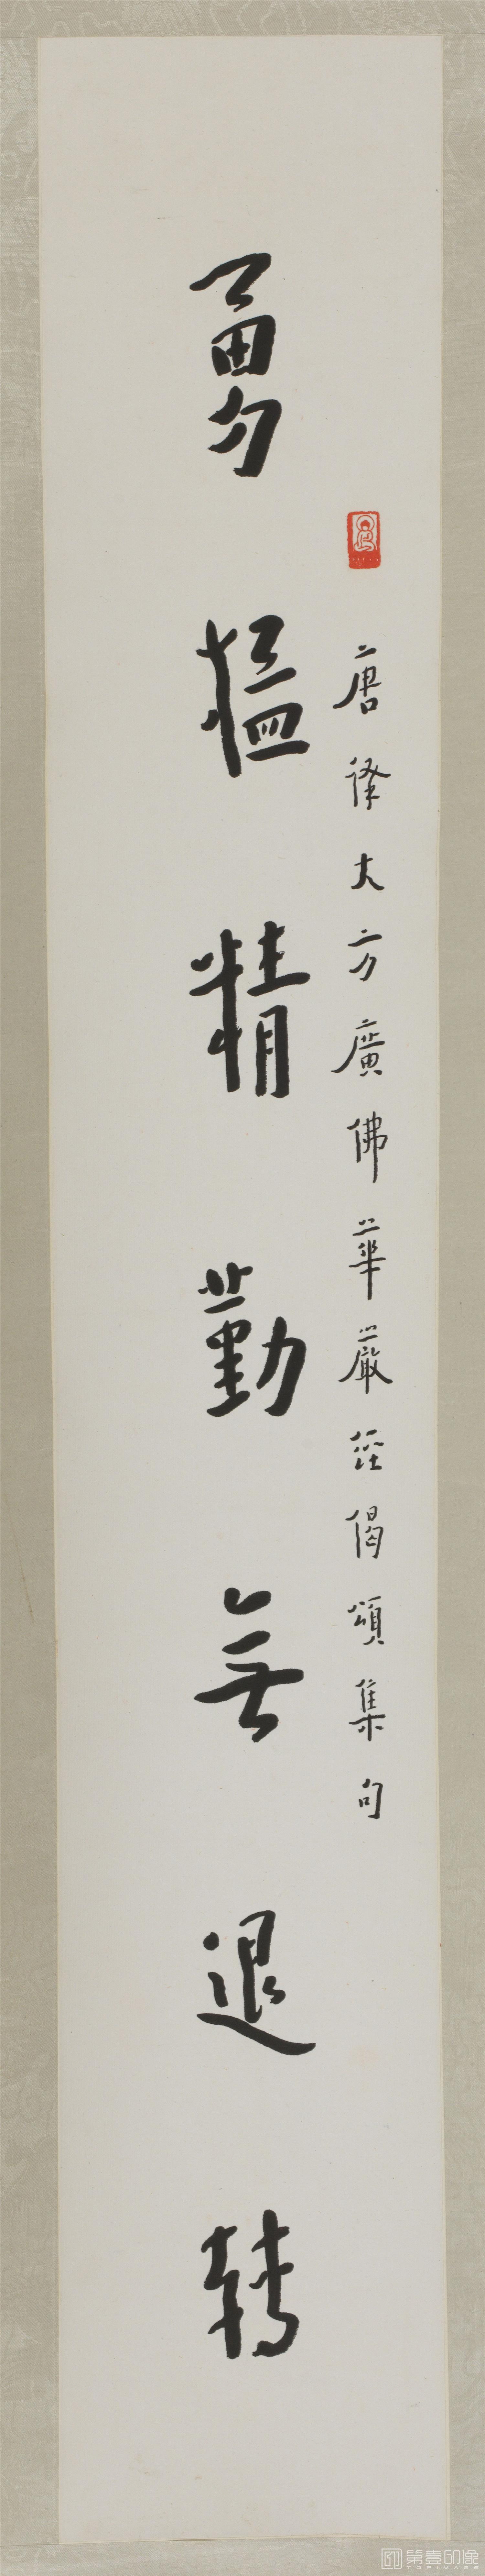 唐译大方廣佛華嚴經偈頌集句
勇猛精勤無退轉
第壹印象
TOPIMAGE